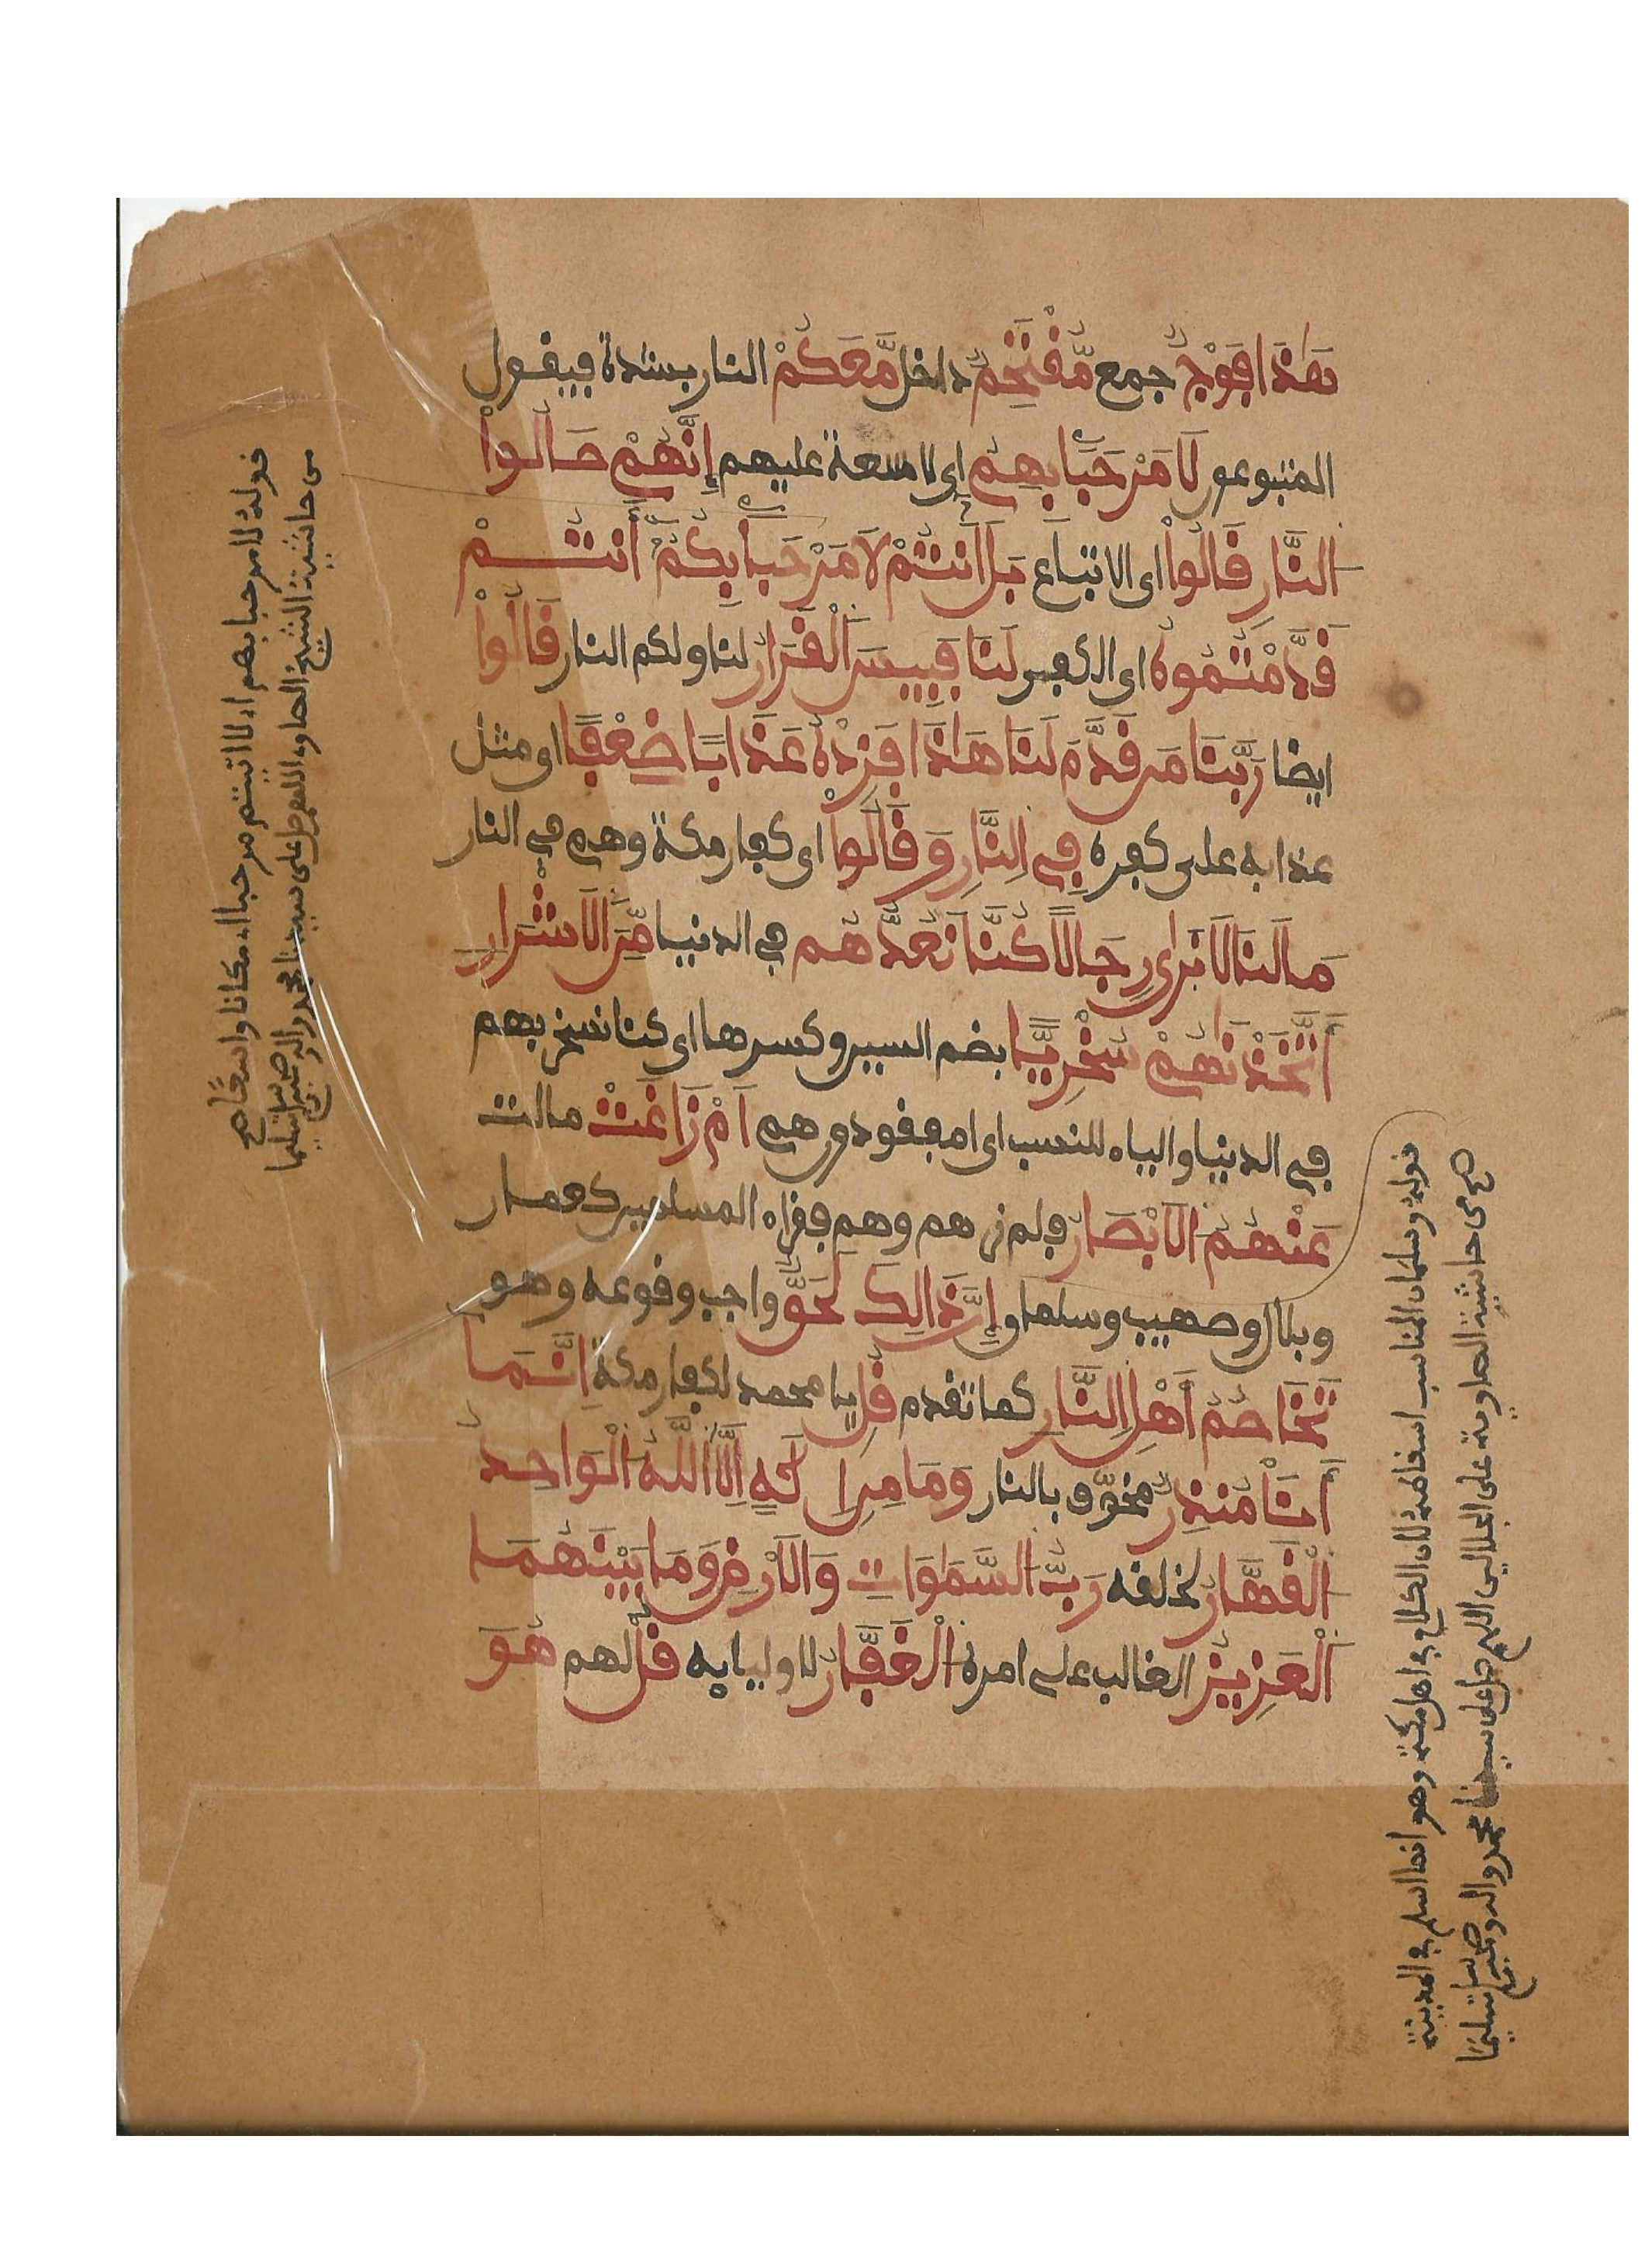 هَٰذَا فَوْجٌ جمع مُّقْتَحِمٌ داخل مَّعَكُمْ النار بشدة فيقول
المتبوعون لَا مَرْحَبًا بِهِمْ اى لا سعة عليهم إِنَّهُمْ صَالُوا
النَّارِ قَالُوا اى الاتباع بَلَ اَنتُمْ لَا مَرْحَبًا بِكُمْ أَنتُمْ
قَدَّمْتُمُوهُ اى الكفر لَنَا فَبِيسَ الْقَرَارُ لنا ولكم النار قَالُوا
ايضا رَبَّنَا مَن قَدَّمَ لَنَا هَٰذَا فَزِدْهُ عَذَابًا ضِعْفًا اى مثل
عذابه على كفره فِي النَّارِ وَقَالُوا اى كفار مكة وهم في النار
مَا لَنَا لَا نَرَىٰ رِجَالًا كُنَّا نَعُدُّهُم في الدنيا مِّنَ الْأَشْرَارِ
أَتَّخَذْنَٰهُمْ سُخْرِيًّا بضم السين وكسرها اى كنا نسخر بهم
في الدنيا والياء للنسب اى امفقودون هم أَمْ زَاغَتْ مالت
عَنْهُمُ الْأَبْصَٰرُ فلم نرهم وهم فقراء المسلمين كعمار
وبلال وصهيب وسلمان إِنَّ ذَٰلِكَ لَحَقٌّ واجب وقوعه وهو
تَخَاصُمُ أَهْلِ النَّارِ كما تقدم قُلْ يا محمد لكفار مكة إِنَّمَا
أَنَا مُنذِرٌ مخوف بالنار وَمَا مِنِ الَٰهٍ إِلَّا اللَّهُ الْوَاحِدُ
الْقَهَّارُ لخلقه رَبُّ السَّمَٰوَاتِ وَالْأَرْضِ وَمَا بَيْنَهُمَا
الْعَزِيزُ الغالب على امره الْغَفَّٰرُ لاوليايه قُلْ لهم هُوَ
قوله لا مرحبا بهم اى لا اتيتم مرحبا اى مكانا واسعا اهـ
من حاشية الشيخ الصاوي اللهم صل على سيدنا محمد واله وصحبه وسلم تسليما
قوله وسلمان المناسب اسقاطه لان الكلام في اهل مكة وهو انما اسلم في المدينة
اهـ من حاشية الصاوي على الجلالين اللهم صل على سيدنا محمد واله وصحبه وسلم تسليما